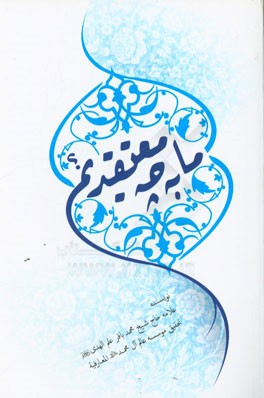 ما به چه معتقدیم؟
نویسنده
علامه حاج شیخ محمد باقر علم الهدی
تحقیق موسسه علم آل محمد المعارفیة